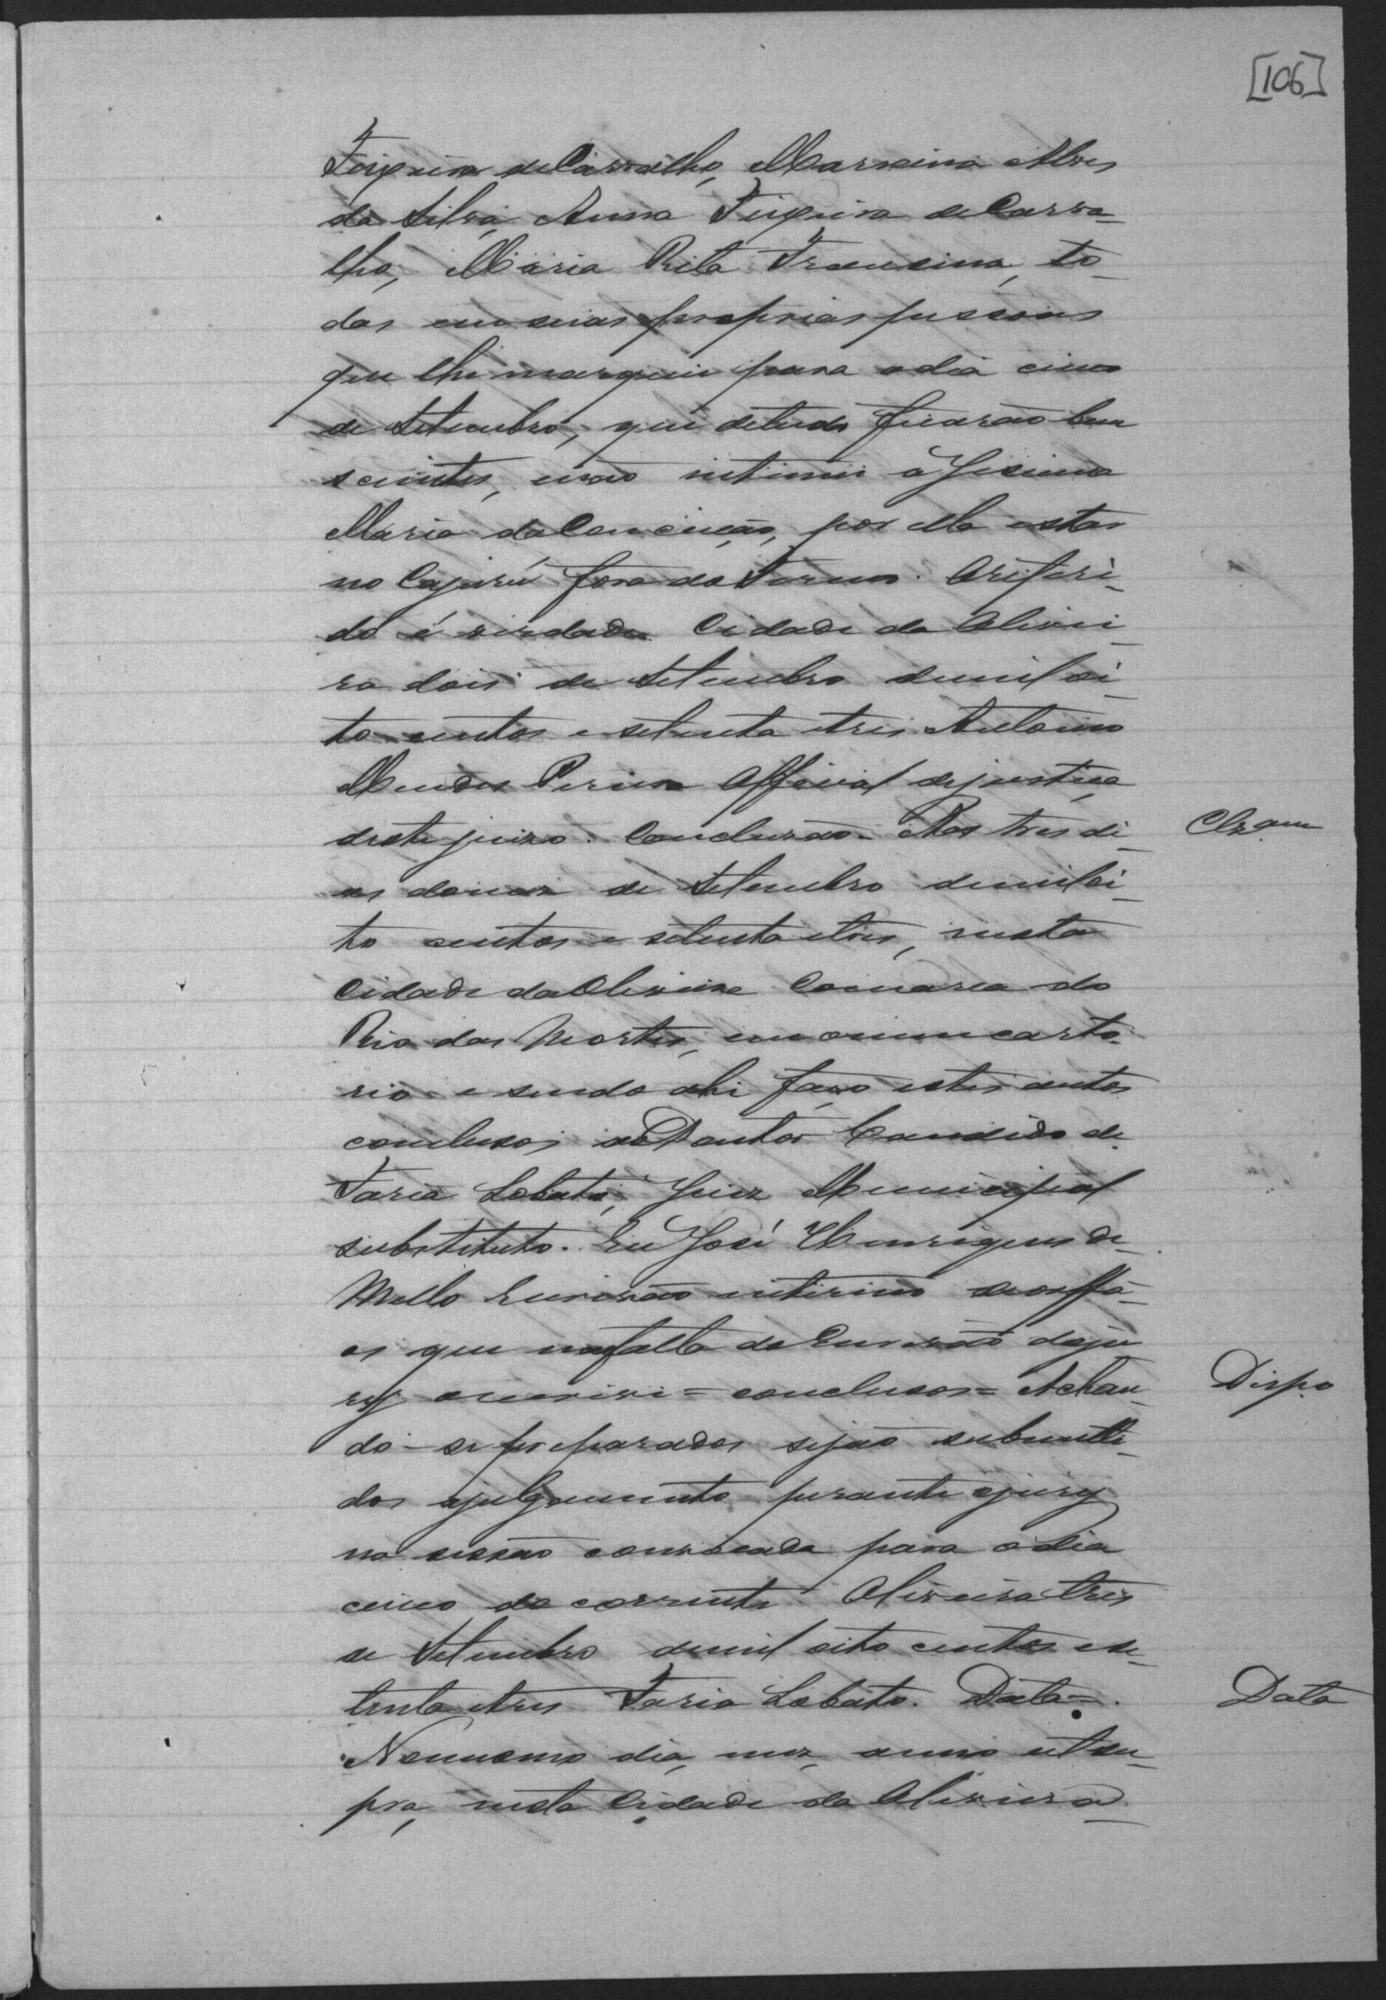 [106]
Teixeira de Carvalho, Marxina Alves
da Silva, Anna Teixeira de Carva-
lho, Maria Rita Francina, to-
das em suas proprias pessoas
que lhe marquei para o dia cinco
de Setembro, que de tudo ficarão bem
scientes, não intimei a Jesuina
Maria da Conceição, por ella estar
no Cajurú fora do Termo. O referi-
do é verdade. Cidade da Olivei-
ra dois de Setembro de mil oi-
to centos e setenta e tres Antonio
Mendes Pereira Official de justiça
deste juizo. Concluzão - Aos tres di-
as do mez de Setembro de mil oi-
to centos e setenta e tres, nesta
Cidade da Oliveira Comarca do
Rio das Mortes, em o meu carto-
rio e sendo ahi faço estes autos
conclusos ao Doutor Candido de
Faria Lobato, Juiz Municipal
substituto. Eu José Henriques de
Mello Escrivão interino de orffã-
os que na falta do Escrivão do ju
ry o escrivi = conclusos = Achan-
do-se preparados sejão submetti-
dos a julgamento perante o jury
na sessão convocada para o dia
cinco do corrente. Oliveira tres
de Setembro de mil oito centos e se-
tenta e tres Faria Lobato. Data =.
No mesmo dia, mez, anno ut su-
pra, nesta Cidade da Oliveira
Clzam
Disp.o
Data